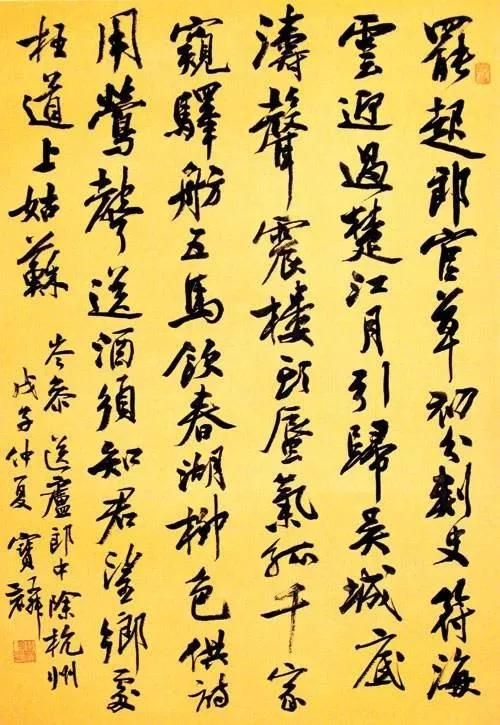 罷起郎官草初分刺史符海
雲迎過楚江月引歸吳城底
濤聲震樓端蜃氣孤千家
窺驛舫五馬飲春湖柳色供詩
用鶯聲送酒須知君望鄉處
枉道上姑蘇
岑參 送廬郎中除杭州
戊子仲夏 寶麟